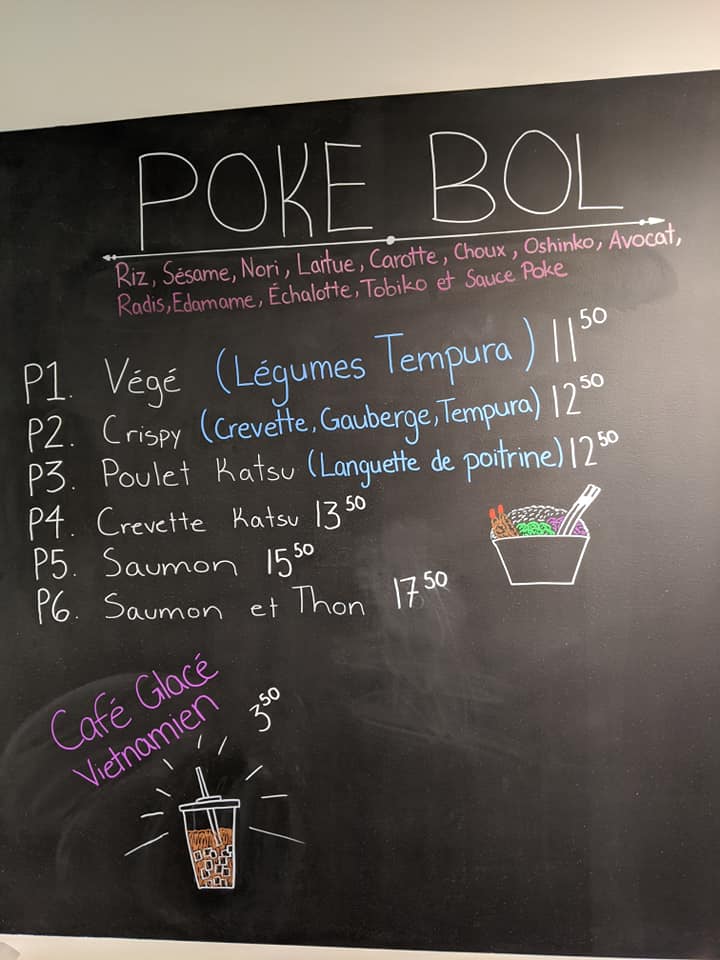 POKE BOL
Riz, Sésame, Nori, Laitue, Carotte, Choux, Oshinko, Avocat,
Radis, Edamame, Échalotte, Tobiko et Sauce Poke
P1. Végé (Légumes Tempura) 11 50
P2. Crispy (Crevette, Gauberge, Tempura) 12 50
P3. Poulet Katsu (Languette de poitrine) 12 50
P4. Crevette Katsu 13 50
P5. Saumon 15 50
P6. Saumon et Thon 17 50
Café Glacé
Vietnamien 3 50